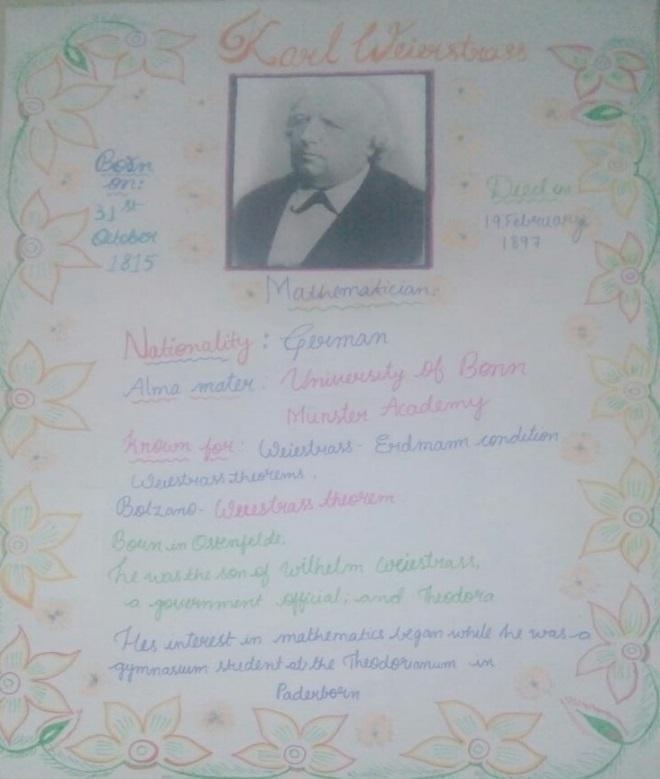 Karl Weierstrass
Born
on:
31st
October
1815
Died on
19 February
1897
Mathematician:
Nationality: German
Alma mater: University of Bonn
Münster Academy
Known for: Weiestrass - Erdmann condition
Weiestrass theorems.
Bolzano - Weiestrass theorem
Born in Ostenfelde,
he was the son of Wilhelm Weiestrass,
a government official; and Theodora
His interest in mathematics began while he was a
gymnasium student at the Theodorianum in
Paderborn